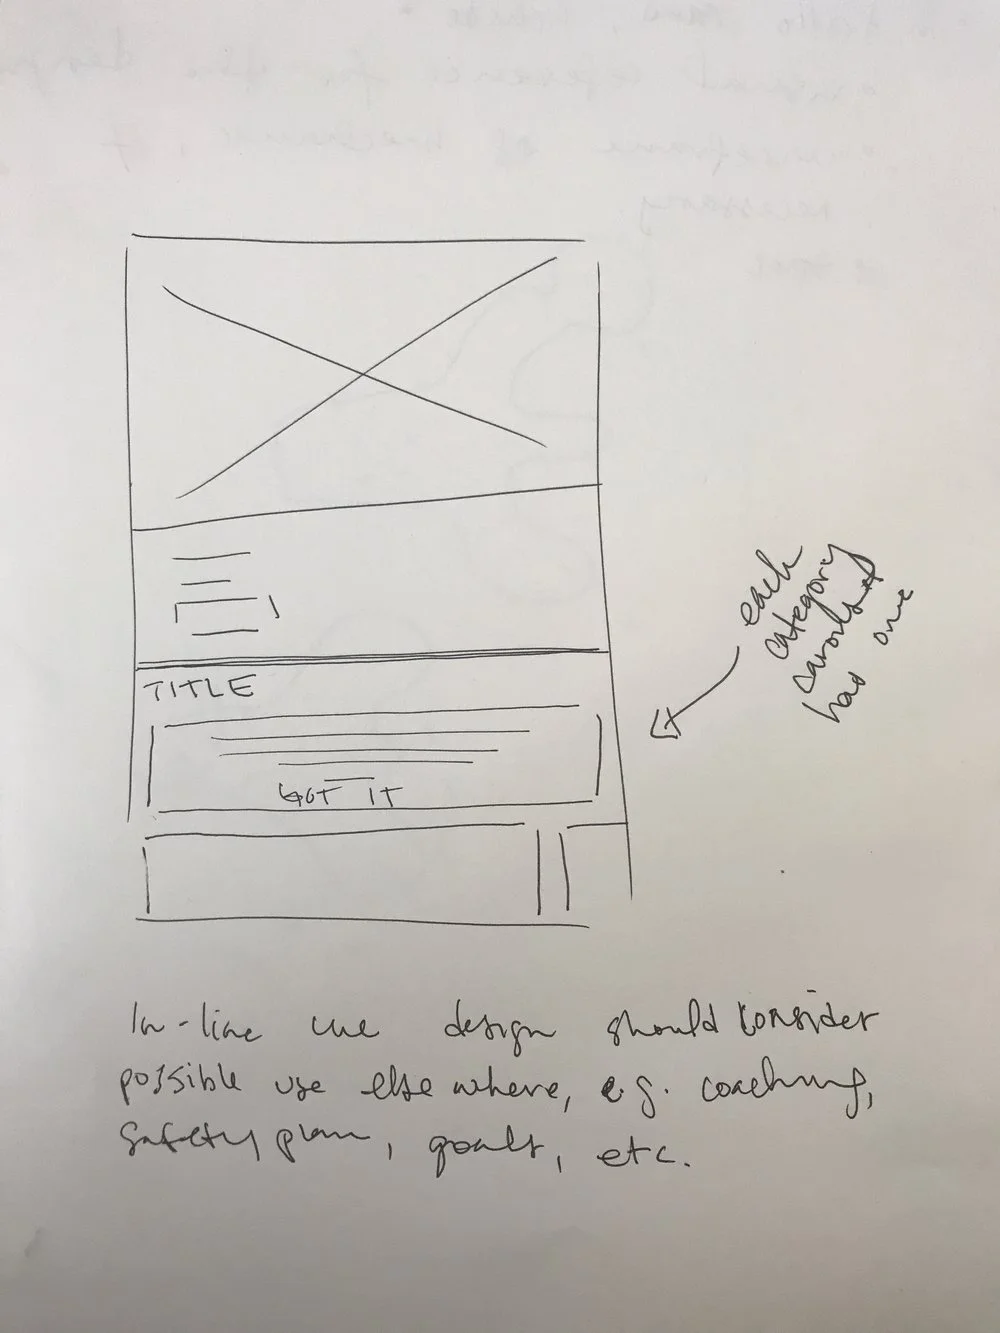 TITLE
GOT IT
each
category
carousel
has one
In-line cue design should consider
possible use elsewhere, e.g. coaching,
safety plan, goals, etc.